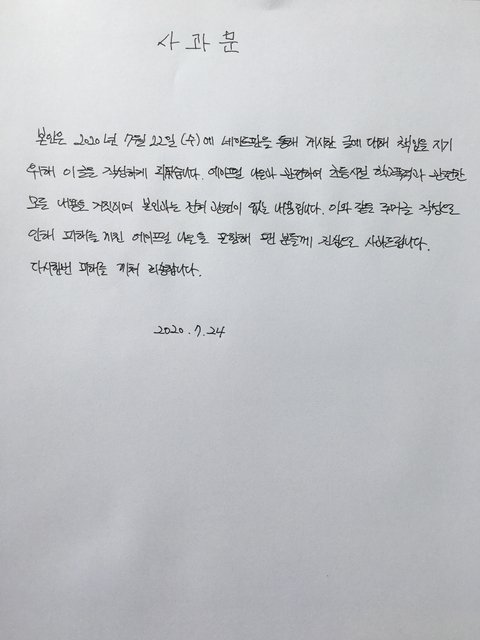 사 과 문
본인은 2020년 7월 22일 (수)에 네이트판을 통해 게시한 글에 대해 책임을 지기
위해 이 글을 작성하게 되었습니다. 에이프릴 나은과 관련하여 초등시절 학교폭력과 관련한
모든 내용은 거짓이며 본인과는 전혀 관련이 없는 내용입니다. 이와 같은 허위글 작성으로
인해 피해를 끼친 에이프릴 나은을 포함해 팬 분들께 진심으로 사과드립니다.
다시한번 피해를 끼쳐 죄송합니다.
2020. 7. 24